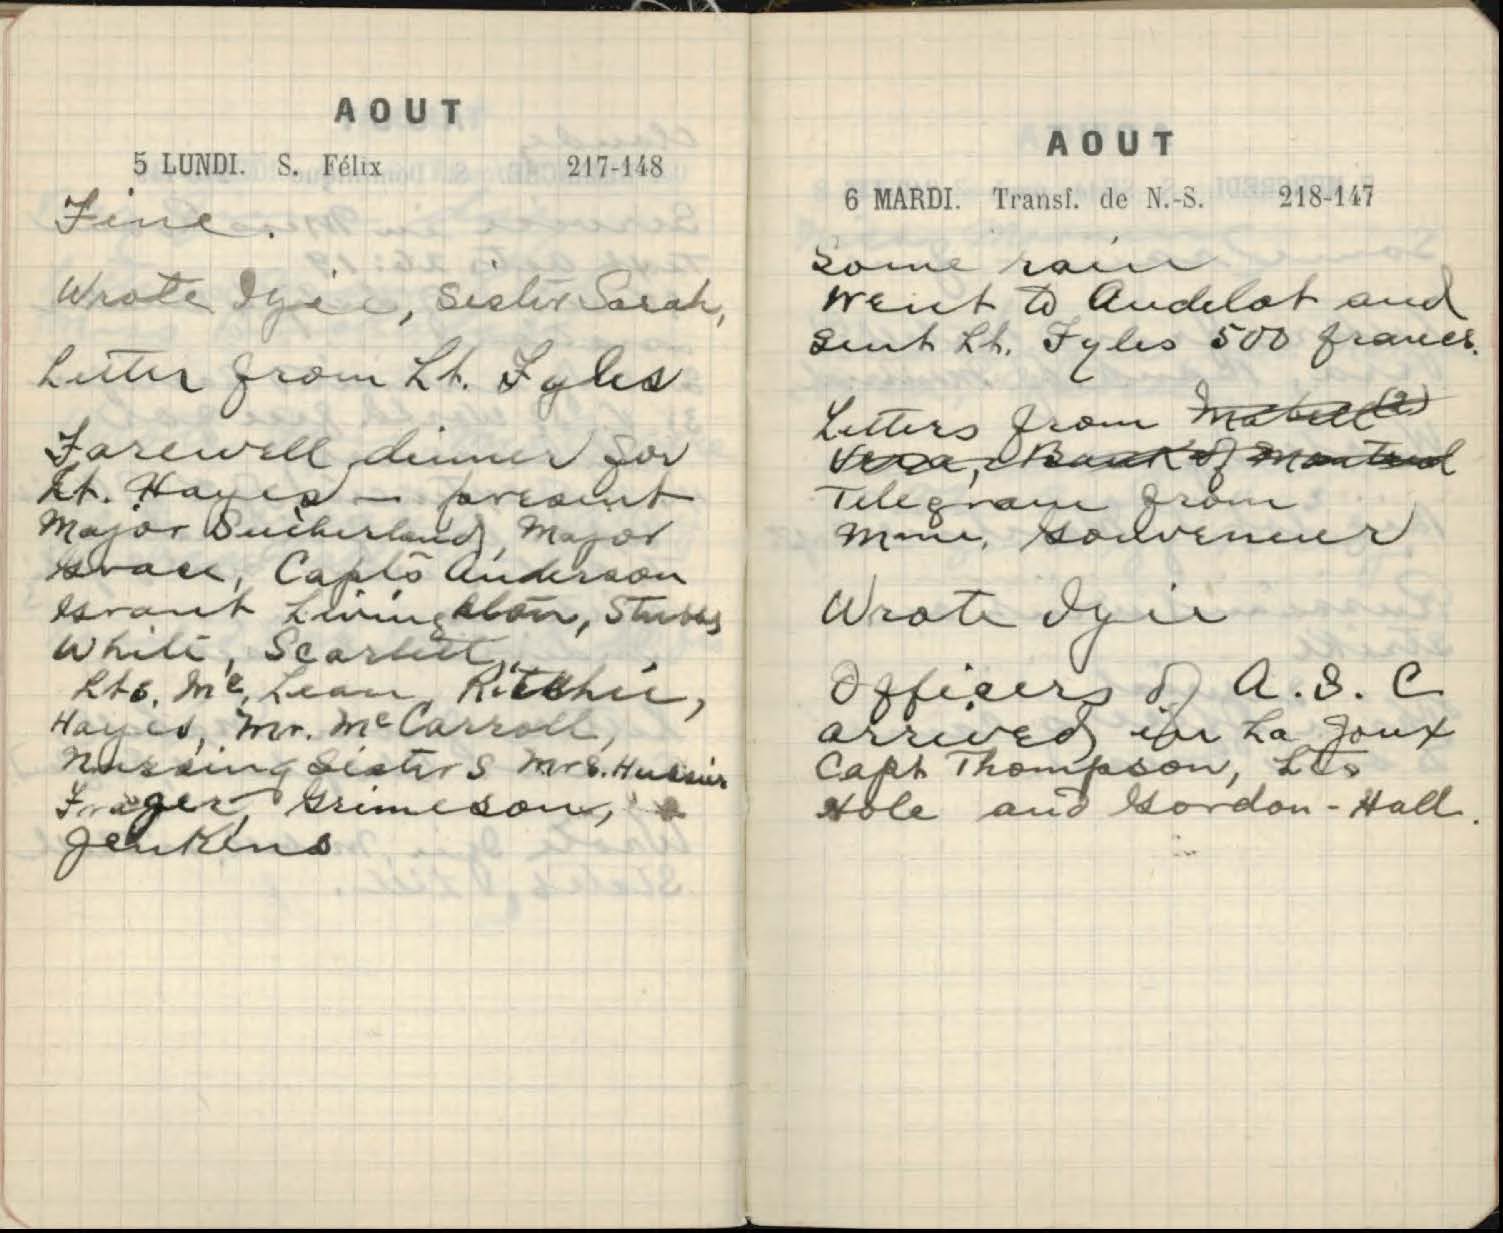 AOUT
5 LUNDI. S. Félix 217-148
Fine.
Wrote Izie, Sister Sarah,
Letter from Lt. Fyles
Farewell dinner for
Lt. Hayes — present
Major Sutherland, Major
Grace, Capts Anderson
Grant Livingston, Stubbs
White, Scarlett,
Lts. Mc, Lean, Ritchie,
Hayes, Mr. McCarroll,
Nursing Sisters Mrs.
Fraser, Grimeson,
Jenkins
AOUT
6 MARDI. Transf. de N.-S. 218-147
Some rain
Went to Andelot and
sent Lt. Fyles 500 francs.
Letters from Mabell (2)
Vera, Bank of Montreal
Telegram from
Mme. Souveneur
Wrote Izie
Officers of A.S.C
arrived in La Joux
Capt Thompson, Lts
Hole and Gordon-Hall.